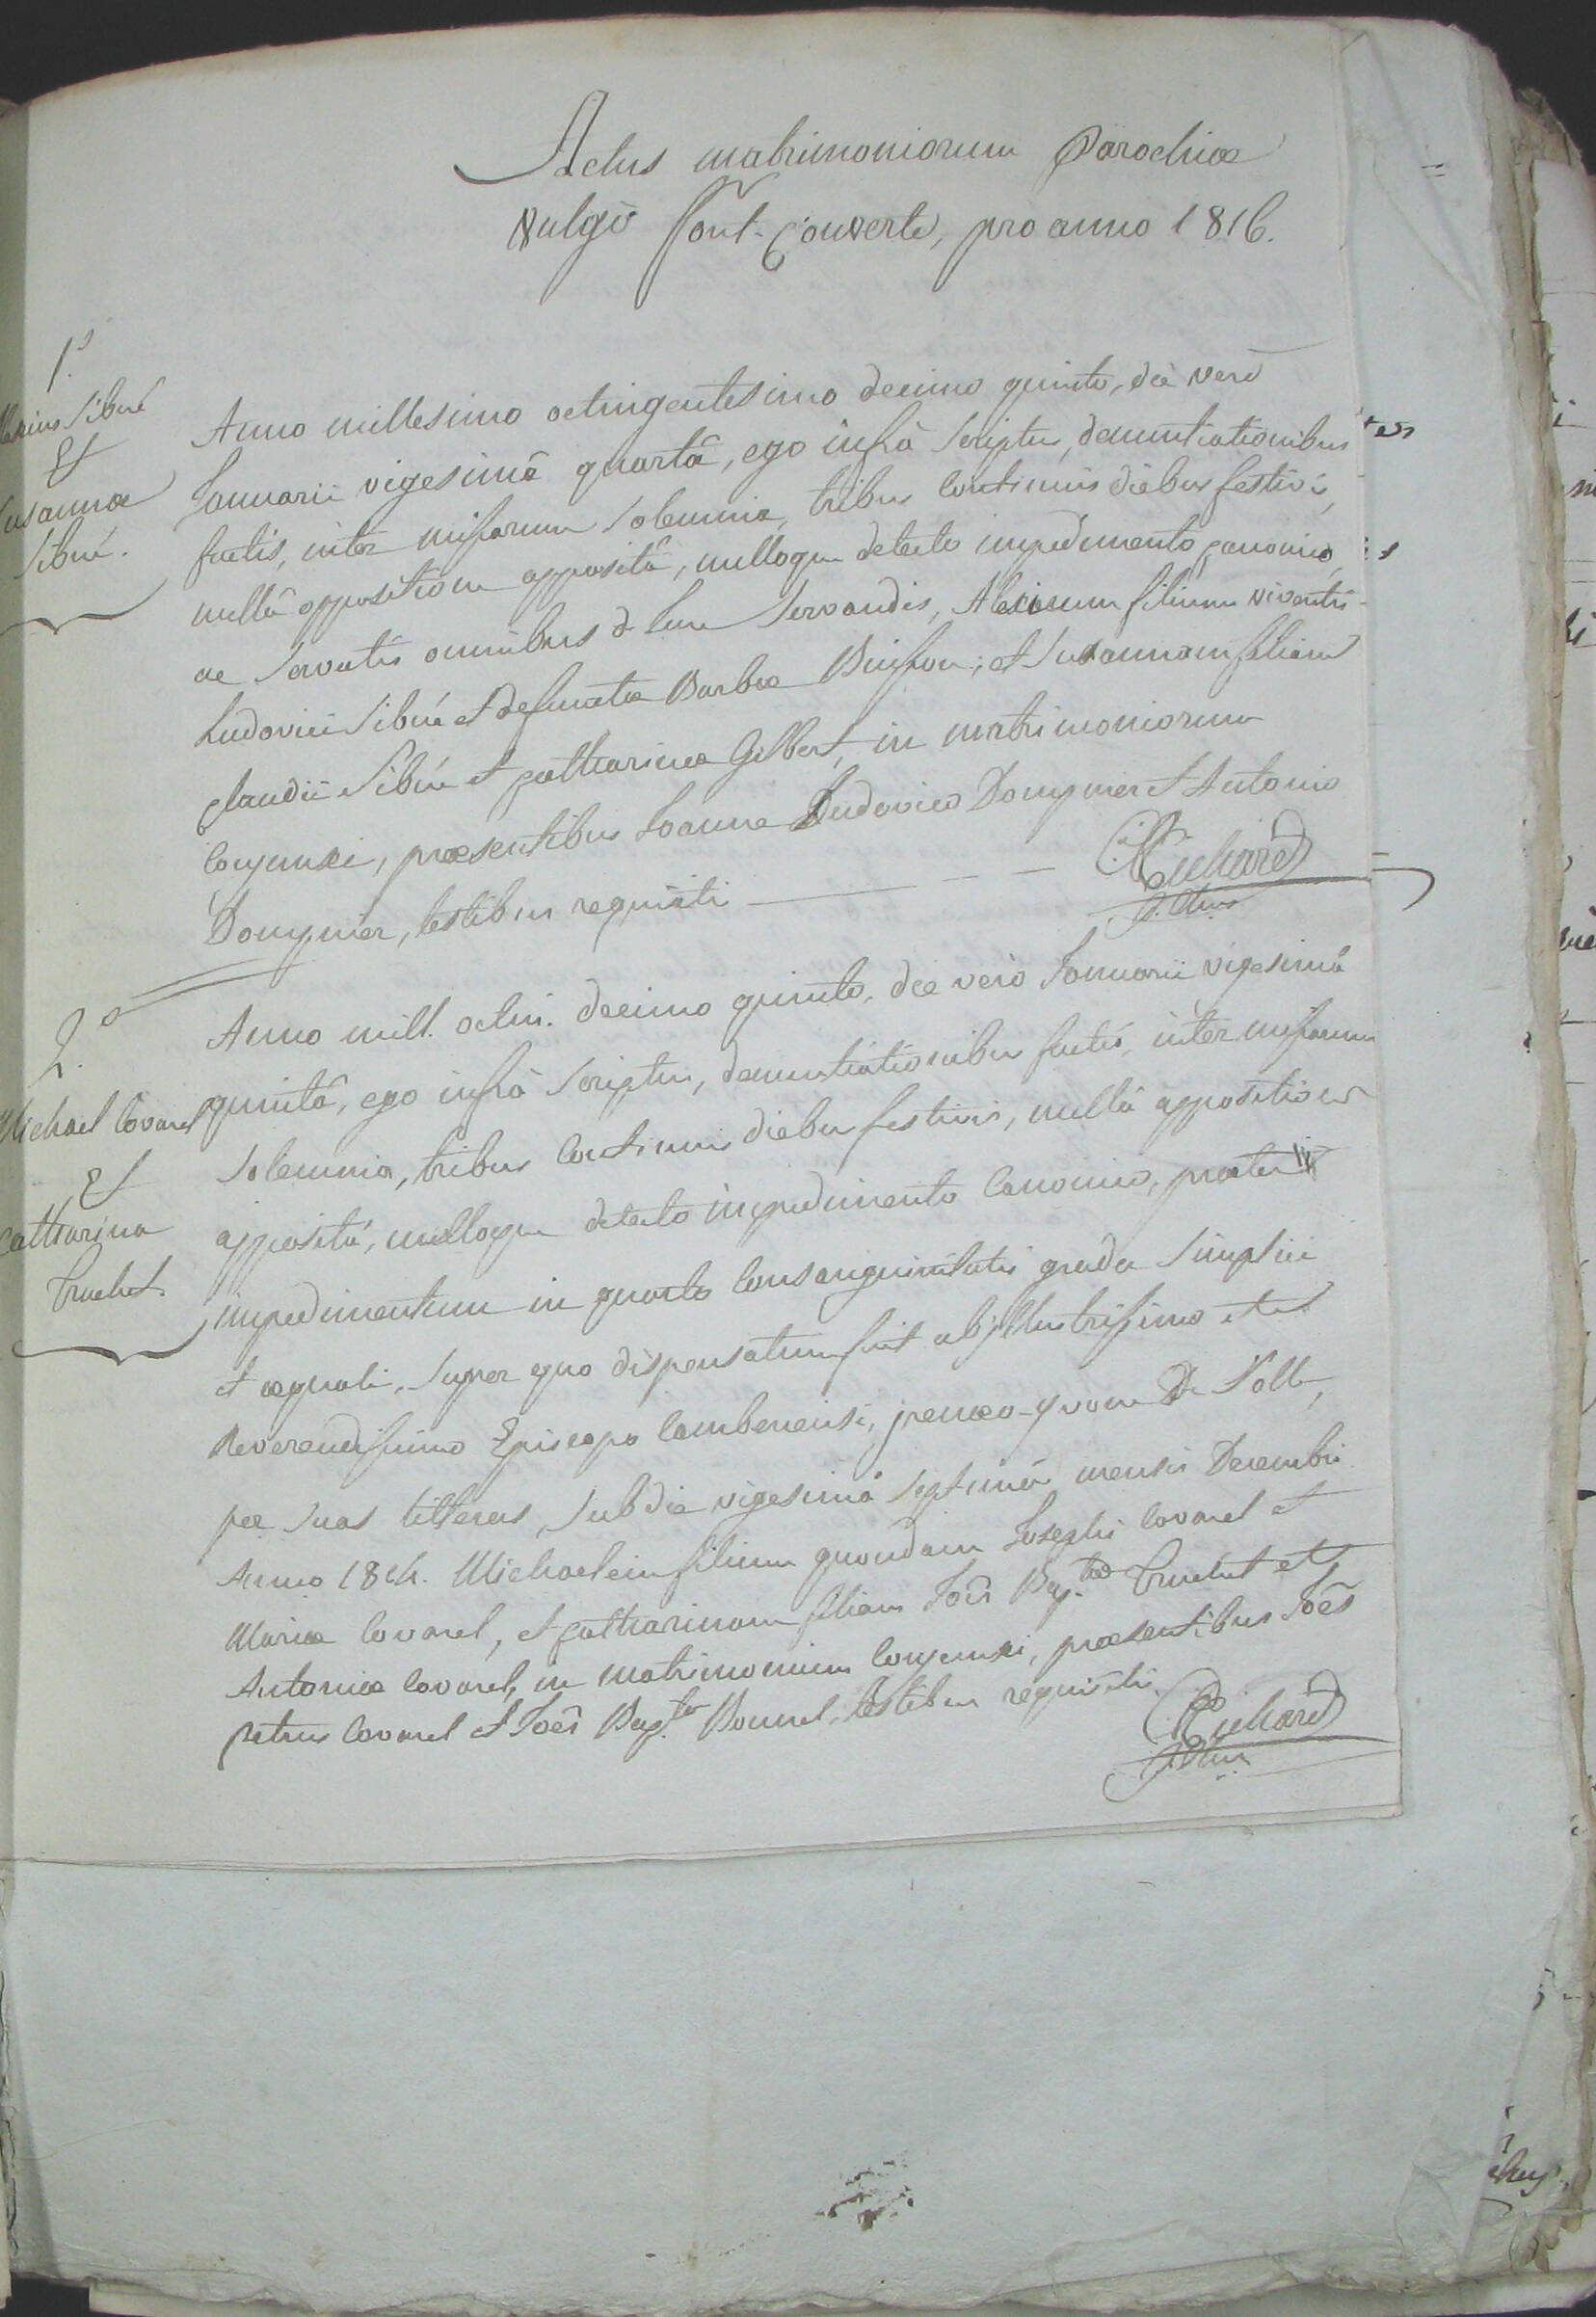 Actus matrimoniorum Parochiæ
vulgò Font-Couverte, pro anno 1816.
1.º
Alexius Sibué
&
Susanna
Sibué.
Anno millesimo octingentesimo decimo quinto, die verò
Januarii vigesimâ quartâ, ego infrà scriptus, denuntiationibus
factis, inter missarum solemnia, tribus continuis diebus festivis,
nullâ oppositione appositâ, nulloque detecto impedimento canonico,
ac servatis omnibus de Jure servandis, Alexium filium viventis
Ludovici Sibué et defunctæ Barbæ Buisson; et Susannam filiam
Claudii Sibué et Catharinæ Gilbert, in matrimoniorum
conjunxi, præsentibus Joanne Ludovico Dompnier et Antonio
Dompnier, testibus requisitis
Richard
2.º
Michael Covarel
&
Catharina
Truchet.
Anno mill. octin. decimo quinto, die verò Januarii vigesimâ
quintâ, ego infrà scriptus, denuntiationibus factis, inter missarum
solemnia, tribus continuis diebus festivis, nullâ oppositione
appositâ, nulloque detecto impedimento canonico, præter
impedimentum in quarto consanguinitatis gradu simplici
et æquali, super quo dispensatum fuit ab illustrissimo et
Reverendissimo Episcopo Camberiensi, irenæo-yvone De Solle,
per suas litteras, sub die vigesimâ septimâ mensis Decembris
Anno 1814. Michaelem filium quondam Josephi Covarel et
Mariæ Covarel, et Catharinam filiam Joês Bap.tæ Truchet et
Antoniæ Covarel, in matrimonium conjunxi, præsentibus Joês
petrus Covarel et Joês Bap.ta Bonnel, testibus requisitis.
Richard